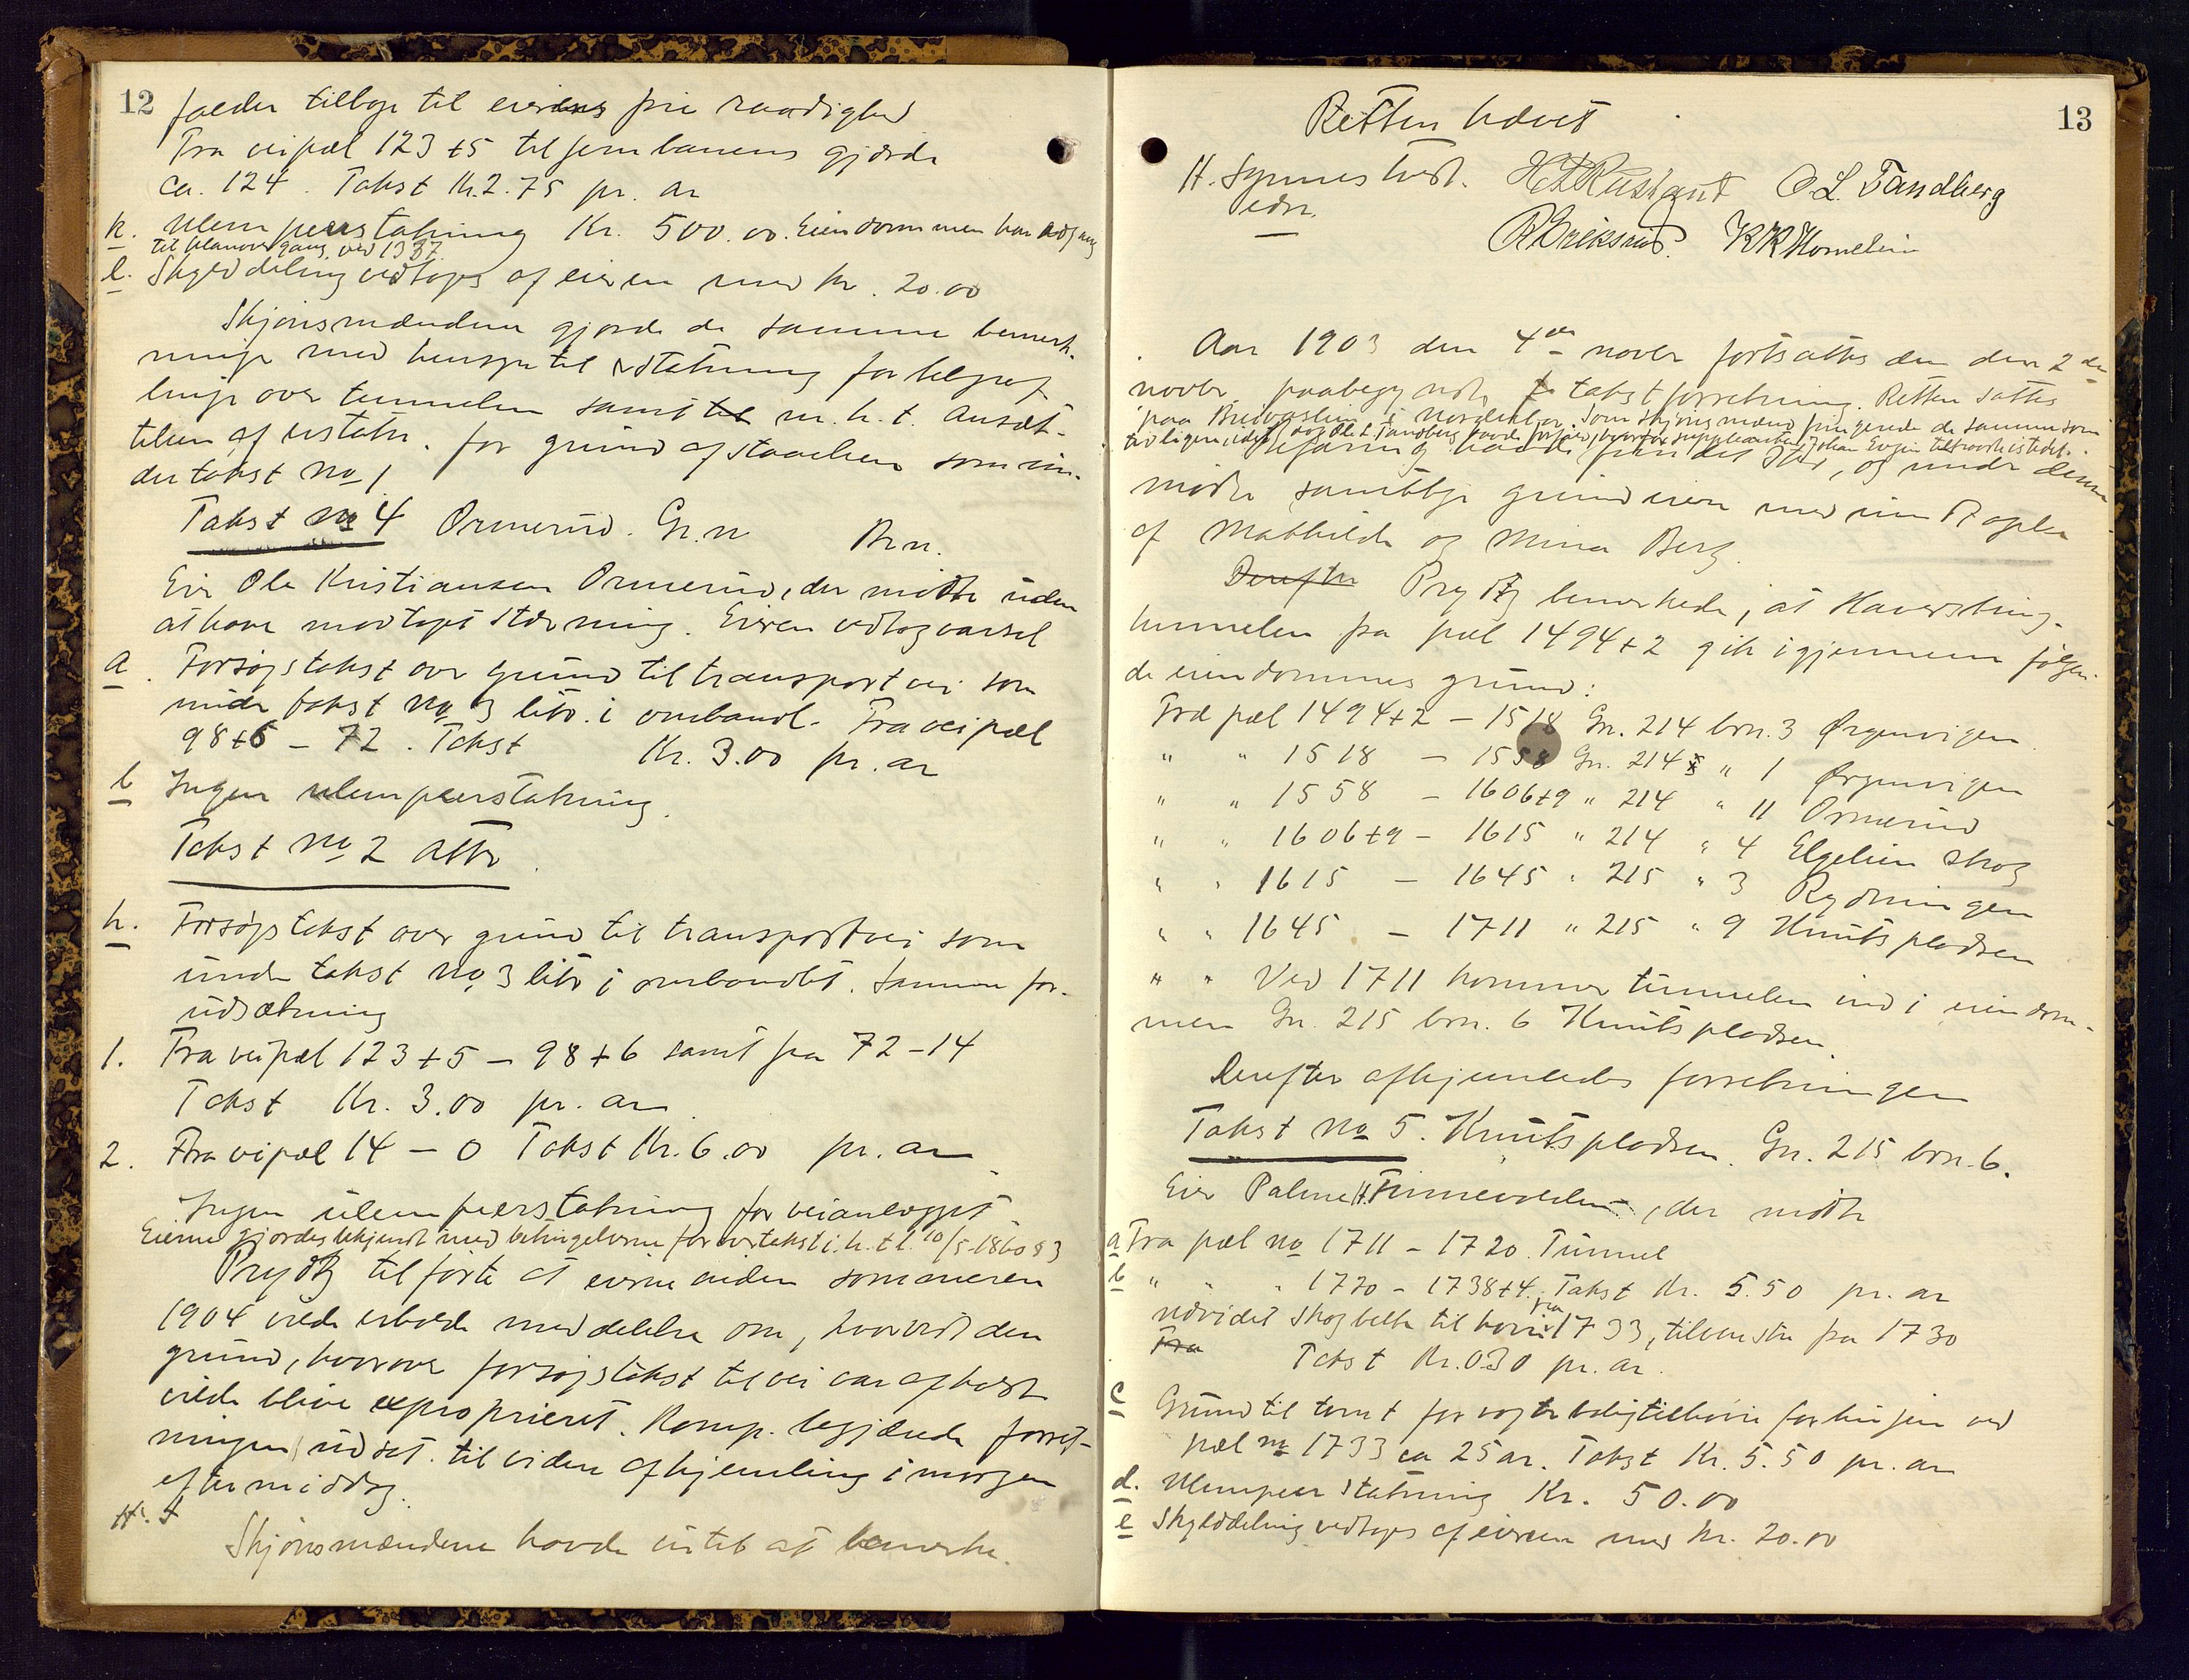 12
falder tilbage til eierens frie raadighed
Fra veipæl 123+5 til jernbanens gjærde
ca. 124. Takst Kr. 2.75 pr. ar
k. Ulempeerstatning Kr. 500.00. Eiendommen har adgang
til planovergang ved 1337.
l. Skylddeling vedtages af eieren med Kr. 20.00
Skjønsmændene gjorde de samme bemerk-
ninger med hensyn til erstatning for telegraf
linje over tunnelen samt til m. h. t. ansæt-
telsen af erstatn. for grund af staaelsen som un-
der takst No 1
Takst No 4 Ormerud. Gr.n Br.n.
Eier Ole Kristiansen Ormerud, der mødte uden
at have modtaget stævning. Eieren vedtog varsel
a. Forsøgstakst over grund til transportvei som
under takst No 3 litr. i ombandl. Fra veipæl
98+6 – 72. Takst Kr. 3.00 pr. ar
b Ingen ulempeerstatning.
Takst No 2 attr.
h. Forsøgstakst over grund til transportvei som
under takst No 3 litr i ombandlet. Samme for-
udsætning
1. Fra veipæl 123+5 – 98+6 samt fra 72–14
Takst Kr. 3.00 pr. ar.
2. Fra veipæl 14 – 0 Takst Kr. 6.00 pr. ar.
Ingen ulempeerstatning for veianlægget
Eierne gjordes bekjendt med betingelserne for overtakst i. h. t. l. 10/5-1860 § 3
Prydtz tilførte at eierne inden sommeren
1904 vilde erholde meddelelse om, hvorvidt den
grund, hvorover forsøgstakst til vei var afholdt
vilde blive exproprieret. Komp. begjærede forret-
ningen udsat til videre afhjemling i morgen
eftermiddag.
Skjønsmændene havde intet at bemerke.
13
Retten hævet
H. Synnestvedt. O. L. Tandberg
edsv.
R. Eriksrud. K K Homelien
Aar 1903 den 4de novbr fortsattes den den 2den
novbr. paabegyndte takstforretning. Retten sattes
paa i Norderhov. Som skjønsmænd fungerede de samme som
tidligere, idet dog Ole L Tandberg havde forfald, hvorfor suppleanten Johan tiltraadte istedet.
Befaring havde fundet sted, og under denne
mødte samtlige grundeiere med undtagelse
af Mathilde og Mina Berg.
Derefter Prydtz bemerkede, at Haversting-
tunnelen fra pæl 1494+2 gik igjennem følgen-
de eiendommes grund:
Fra pæl 1494+2 – 1518 Gn. 214 brn. 3 Ørgenvigen
" " 1518 – 1558 Gn. 214 " 1 Ørgenvigen
" " 1558 – 1606+9 " 214 " 11 Ormerud
" " 1606+9 – 1615 " 214 " 4 Elgelien skog
" " 1615 – 1645 " 215 " 3 Rydningen
" " 1645 – 1711 " 215 " 9 Knutspladsen
" " Ved 1711 kommer tunnelen ind i eiendom-
men Gn. 215 brn. 6 Knutspladsen.
Derefter afhjemledes forretningen
Takst No 5. Knutspladsen. Gn. 215 brn. 6.
Eier Paline H. , der mødte
a Fra pæl no 1711 – 1720. Tunnel
b " " " 1720 – 1738+4. Takst Kr. 5.50 pr. ar
udvidet skogbelte til høire fra 1733, tilvenstre fra 1730
Fra Takst Kr. 0.30 pr. ar.
c Grund til tomt for vogterbolig tilhøire for linjen ved
pæl no 1733 ca 25 ar. Takst Kr. 5.50 pr. ar
d. Ulempeerstatning Kr. 50.00
e Skylddeling vedtages af eieren med Kr. 20.00